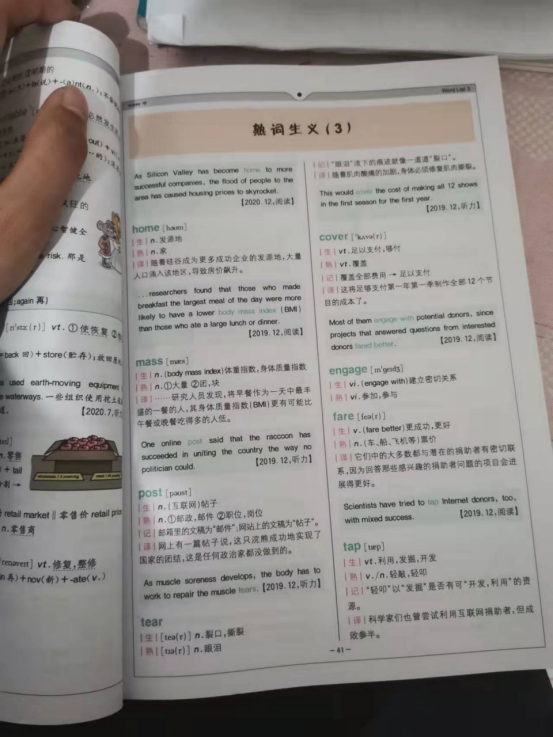 Word List 3
熟词生义(3)
As Silicon Valley has become home to more
successful companies, the flood of people to the
area has caused housing prices to skyrocket.
[2020.12,阅读]
home [həʊm]
|生| n.发源地
|熟| n.家
|译|随着硅谷成为更多成功企业的发源地,大量
人口涌入该地区,导致房价飙升。
... researchers found that those who made
breakfast the largest meal of the day were more
likely to have a lower body mass index (BMI)
than those who ate a large lunch or dinner.
[2019.12,阅读]
mass [mæs]
|生| n.(body mass index)体重指数,身体质量指数
|熟| n.①大量 ②团,块
|译|……研究人员发现,将早餐作为一天中最丰
盛的一餐的人,其身体质量指数(BMI)更有可能比
午餐或晚餐吃得多的人低。
One online post said that the raccoon has
succeeded in uniting the country the way no
politician could.
[2019.12,阅读]
post [pəʊst]
|生| n.(互联网)帖子
|熟| n.①邮政,邮件 ②职位,岗位
|记|邮箱里的文稿为“邮件”,网站上的文稿为“帖子”。
|译|网上有一篇帖子说,这只浣熊成功地实现了
国家的团结,这是任何政治家都没做到的。
As muscle soreness develops, the body has to
work to repair the muscle tears. [2019.12,听力]
tear
|生| [teə(r)] n.裂口,撕裂
|熟| [tɪə(r)] n.眼泪
|记|“眼泪”流下的痕迹就像一道道“裂口”。
|译|随着肌肉酸痛的加剧,身体必须修复肌肉撕裂。
This would cover the cost of making all 12 shows
in the first season for the first year.
[2019.12,听力]
cover [ˈkʌvə(r)]
|生| vt.足以支付,够付
|熟| vt.覆盖
|记|覆盖全部费用→足以支付
|译|这将足够支付第一年第一季制作全部12个节
目的成本了。
Most of them engage with potential donors, since
projects that answered questions from interested
donors fared better.
[2019.12,阅读]
engage [ɪnˈɡeɪdʒ]
|生| vi.(engage with)建立密切关系
|熟| vi.参加,参与
fare [feə(r)]
|生| v.(fare better)更成功,更好
|熟| n.(车、船、飞机等)票价
|译|它们中的大多数都与潜在的捐助者有密切联
系,因为回答那些感兴趣的捐助者问题的项目会进
展得更好。
Scientists have tried to tap Internet donors, too,
with mixed success.
[2019.12,阅读]
tap [tæp]
|生| vt.利用,发掘,开发
|熟| v./n.轻敲,轻叩
|记|“轻叩”以“发掘”是否有可“开发,利用”的资
源。
|译|科学家们也曾尝试利用互联网捐助者,但成
败参半。
-41-